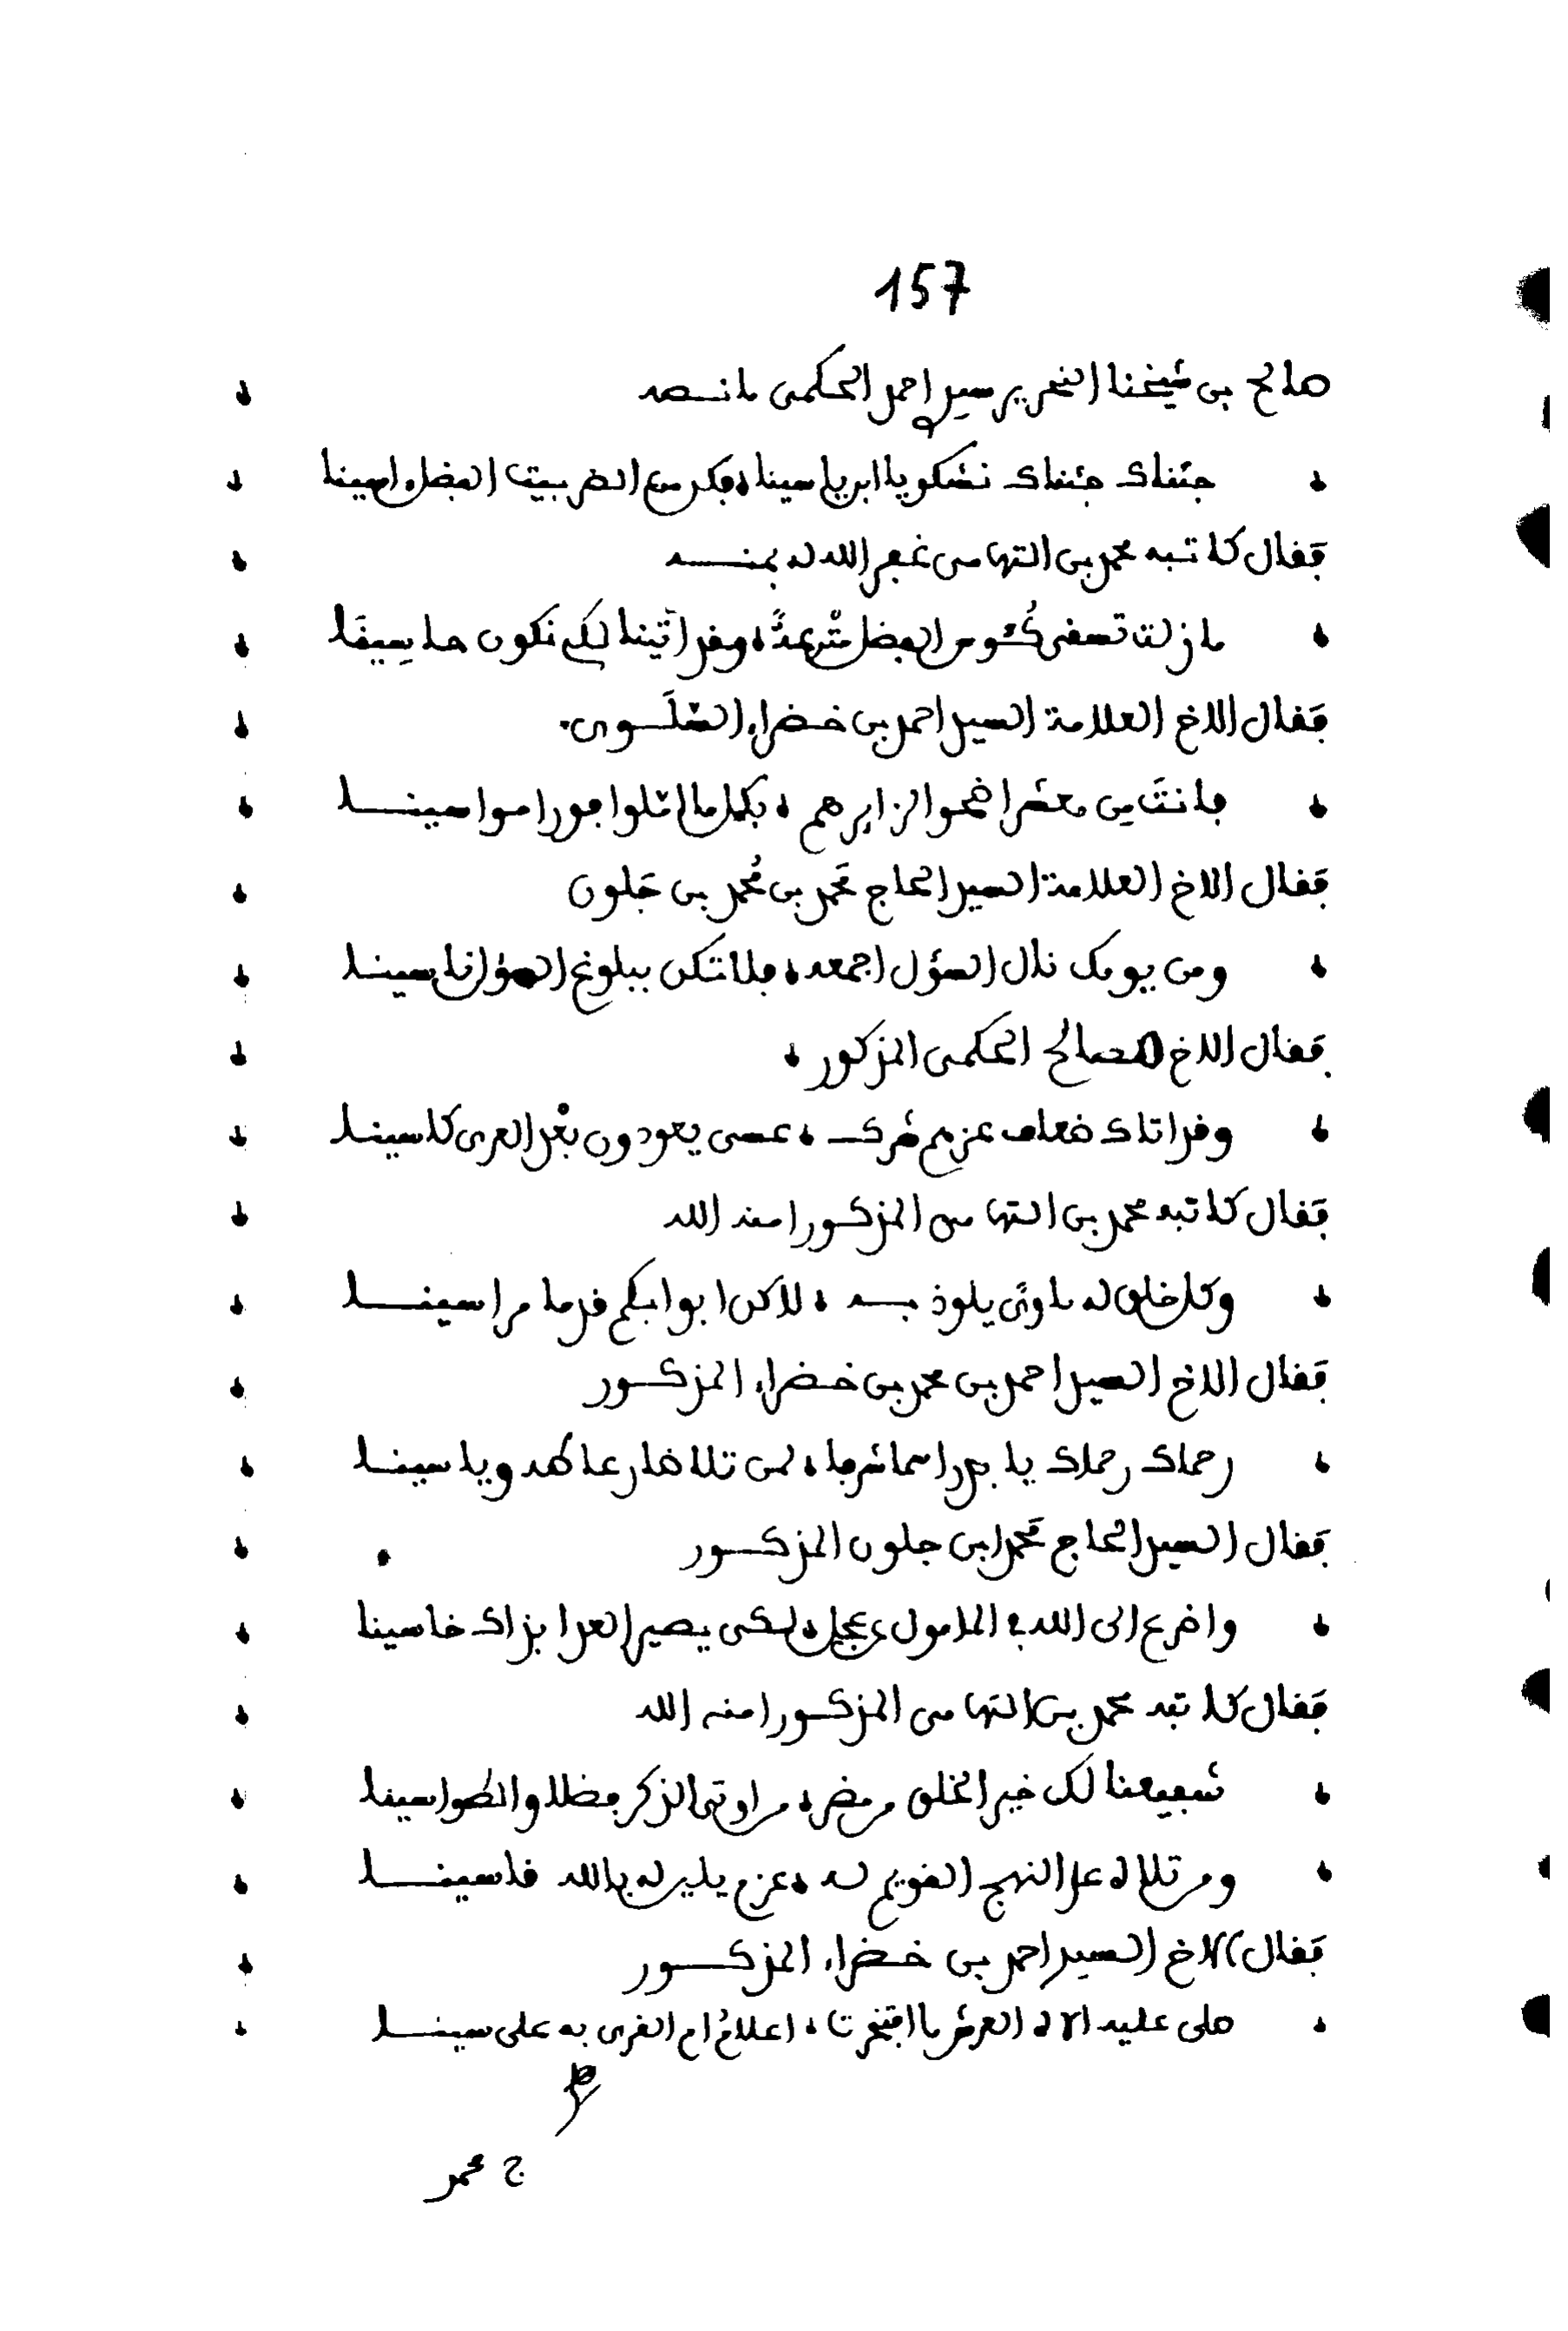 157
صالح بن شيخنا النحرير سيدي احمد الحكمى ما نصه
جئناك جئناك نشكو يا ابن ياسينا فكن مع الضر بيت الفضل اسينا
فقال كاتبه محمد بن التهامى غفر الله له بمنه
ما زلت تسقى كئوس الفضل مترعة وقد اتينا لكم نكون حاسينا
فقال الاخ العلامة السيد احمد بن خضراء السلوى
فانت من معشر اضحوا لزايرهم بكل مال تلوا فورا مواسينا
فقال الاخ العلامة السيد الحاج محمد بن محمد بن جلون
ومن يومك نال السؤل اجمعه فلا تكن ببلوغ السؤل ناسينا
فقال الاخ الصالح الحكمى المذكور
وقد اتاك ضعاف عز مدرك عسى يعودون بعد العرى كاسينا
فقال كاتبه محمد بن التهامى المذكور امنه الله
وكل خلق له ماوى يلوذ به لاكن ابوابكم قدما مراسينا
فقال الاخ السيد احمد بن محمد بن خضراء المذكور
رحماك رحماك يا بدرا سما شرفا لمن تلا ضارعا طه وياسينا
فقال السيد الحاج محمد ابن جلون المذكور
واضرع الى الله فى المامول عجل لكى يصير العدا بذاك خاسينا
فقال كاتبه محمد بن التهامى المذكور امنه الله
شفيعنا لك خير الخلق من مضر من اوتى الذكر فضلا والطواسينا
ومن تلاه على النهج القويم له عزم يلين له بالله قاسينا
فقال الاخ السيد احمد بن خضراء المذكور
صلى عليه الاه العرش ما افتخرت اعلام ام القرى به على سينا
ج محمد